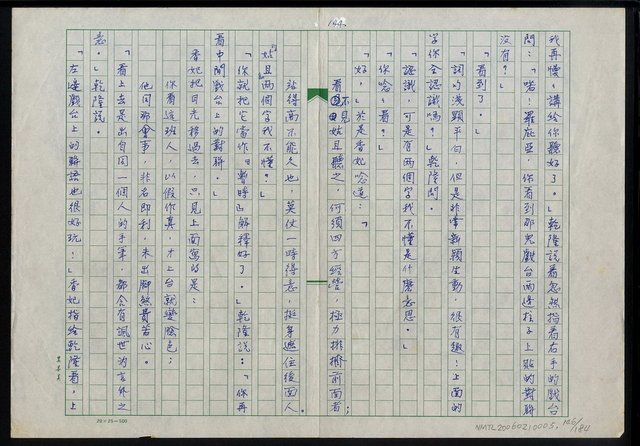 144
我再慢々講給你聽好了。」乾隆說着忽然指着右手的戲台
問：「喏！羅庇亞，你看到那鬼戲台兩邊柱子上貼的對聯
沒有？」
「看到了。」
「詞句淺顯平勻，但是非常新穎生動，很有趣！上面的
字你全認識嗎？」乾隆問。
「認識，可是有兩個字我不懂是什麼意思。」
「你唸々看？」
「好，」於是香妃唸道：「
看不見姑且聽之，何須四方鑽營，極力排擠前面者；
站得高不能久也，莫仗一時得意，挺身遮住後面人。
『姑且』兩個字我不懂？」
「你就把它當作『暫時』解釋好了。」乾隆說：「你再
看中間戲台上的對聯。」
香妃把目光移過去，只見上面寫的是：
你看這班人，以假作真，才上台就變臉色；
他同那會事，非名即利，未出腳煞費苦心。
「看上去是出自同一個人的手筆，都含有諷世的言外之
意。」乾隆說。
「左邊戲台上的聯語也很好玩！」香妃指給乾隆看，上
20×25=500
NMTL20060210005, 126/184